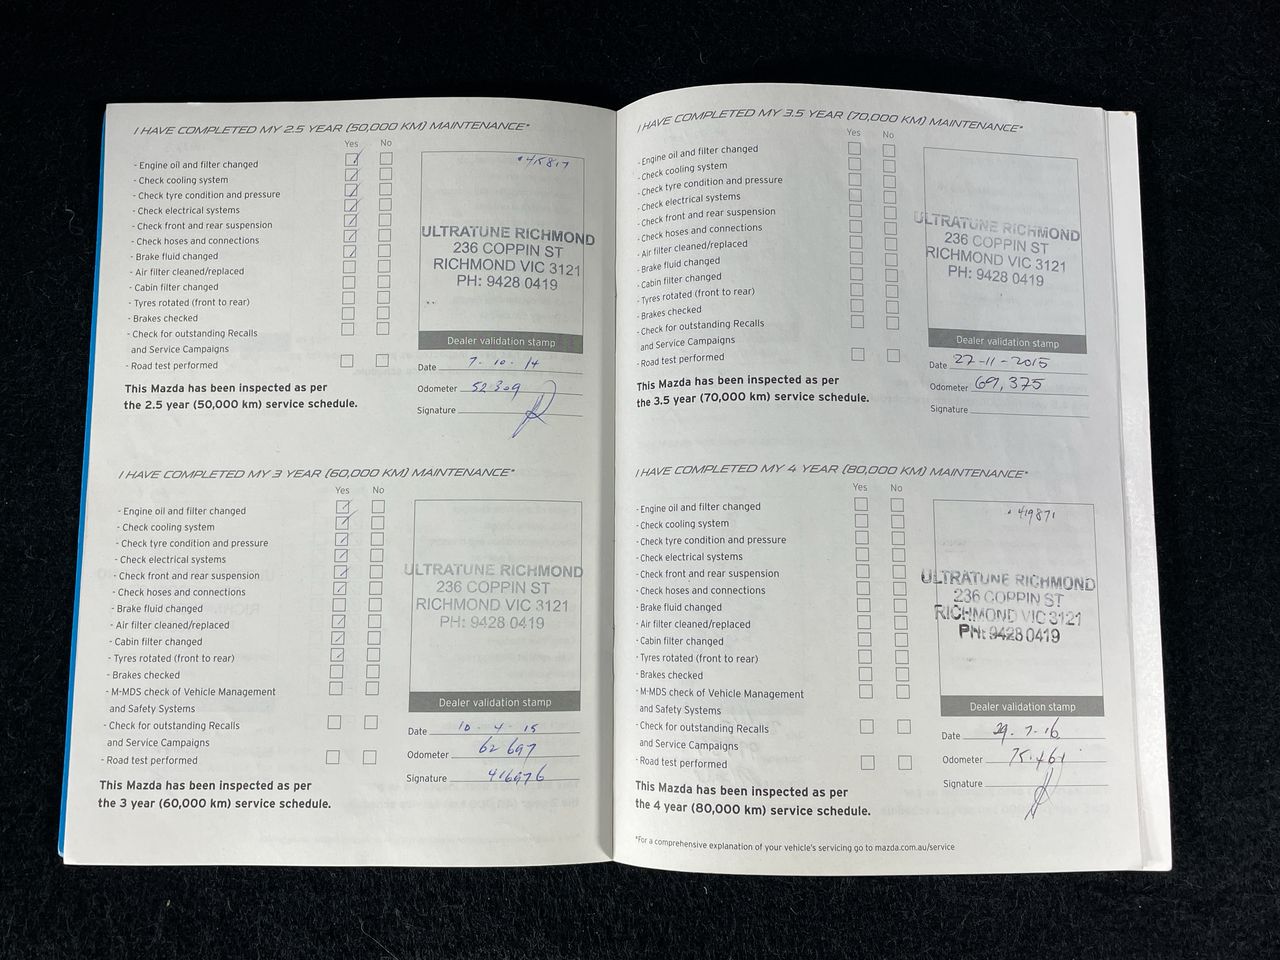 I HAVE COMPLETED MY 2.5 YEAR (50,000 KM) MAINTENANCE*
Yes No
- Engine oil and filter changed
- Check cooling system
- Check tyre condition and pressure
- Check electrical systems
- Check front and rear suspension
- Check hoses and connections
- Brake fluid changed
- Air filter cleaned/replaced
- Cabin filter changed
- Tyres rotated (front to rear)
- Brakes checked
- Check for outstanding Recalls
and Service Campaigns
- Road test performed
This Mazda has been inspected as per
the 2.5 year (50,000 km) service schedule.
ULTRATUNE RICHMOND
236 COPPIN ST
RICHMOND VIC 3121
PH: 9428 0419
Dealer validation stamp
Date 7-10-14
Odometer 52309
Signature
I HAVE COMPLETED MY 3 YEAR (60,000 KM) MAINTENANCE*
Yes No
- Engine oil and filter changed
- Check cooling system
- Check tyre condition and pressure
- Check electrical systems
- Check front and rear suspension
- Check hoses and connections
- Brake fluid changed
- Air filter cleaned/replaced
- Cabin filter changed
- Tyres rotated (front to rear)
- Brakes checked
- M-MDS check of Vehicle Management
and Safety Systems
- Check for outstanding Recalls
and Service Campaigns
- Road test performed
This Mazda has been inspected as per
the 3 year (60,000 km) service schedule.
ULTRATUNE RICHMOND
236 COPPIN ST
RICHMOND VIC 3121
PH: 9428 0419
Dealer validation stamp
Date 10-4-15
Odometer 62697
Signature 416976
I HAVE COMPLETED MY 3.5 YEAR (70,000 KM) MAINTENANCE*
Yes No
- Engine oil and filter changed
- Check cooling system
- Check tyre condition and pressure
- Check electrical systems
- Check front and rear suspension
- Check hoses and connections
- Air filter cleaned/replaced
- Brake fluid changed
- Cabin filter changed
- Tyres rotated (front to rear)
- Brakes checked
- Check for outstanding Recalls
and Service Campaigns
- Road test performed
This Mazda has been inspected as per
the 3.5 year (70,000 km) service schedule.
ULTRATUNE RICHMOND
236 COPPIN ST
RICHMOND VIC 3121
PH: 9428 0419
Dealer validation stamp
Date 27-11-2015
Odometer 69,375
Signature
I HAVE COMPLETED MY 4 YEAR (80,000 KM) MAINTENANCE*
Yes No
- Engine oil and filter changed
- Check cooling system
- Check tyre condition and pressure
- Check electrical systems
- Check front and rear suspension
- Check hoses and connections
- Brake fluid changed
- Air filter cleaned/replaced
- Cabin filter changed
- Tyres rotated (front to rear)
- Brakes checked
- M-MDS check of Vehicle Management
and Safety Systems
- Check for outstanding Recalls
and Service Campaigns
- Road test performed
This Mazda has been inspected as per
the 4 year (80,000 km) service schedule.
419871
ULTRATUNE RICHMOND
236 COPPIN ST
RICHMOND VIC 3121
PH: 9428 0419
Dealer validation stamp
Date 29-7-16
Odometer 75461
Signature
*For a comprehensive explanation of your vehicle's servicing go to mazda.com.au/service